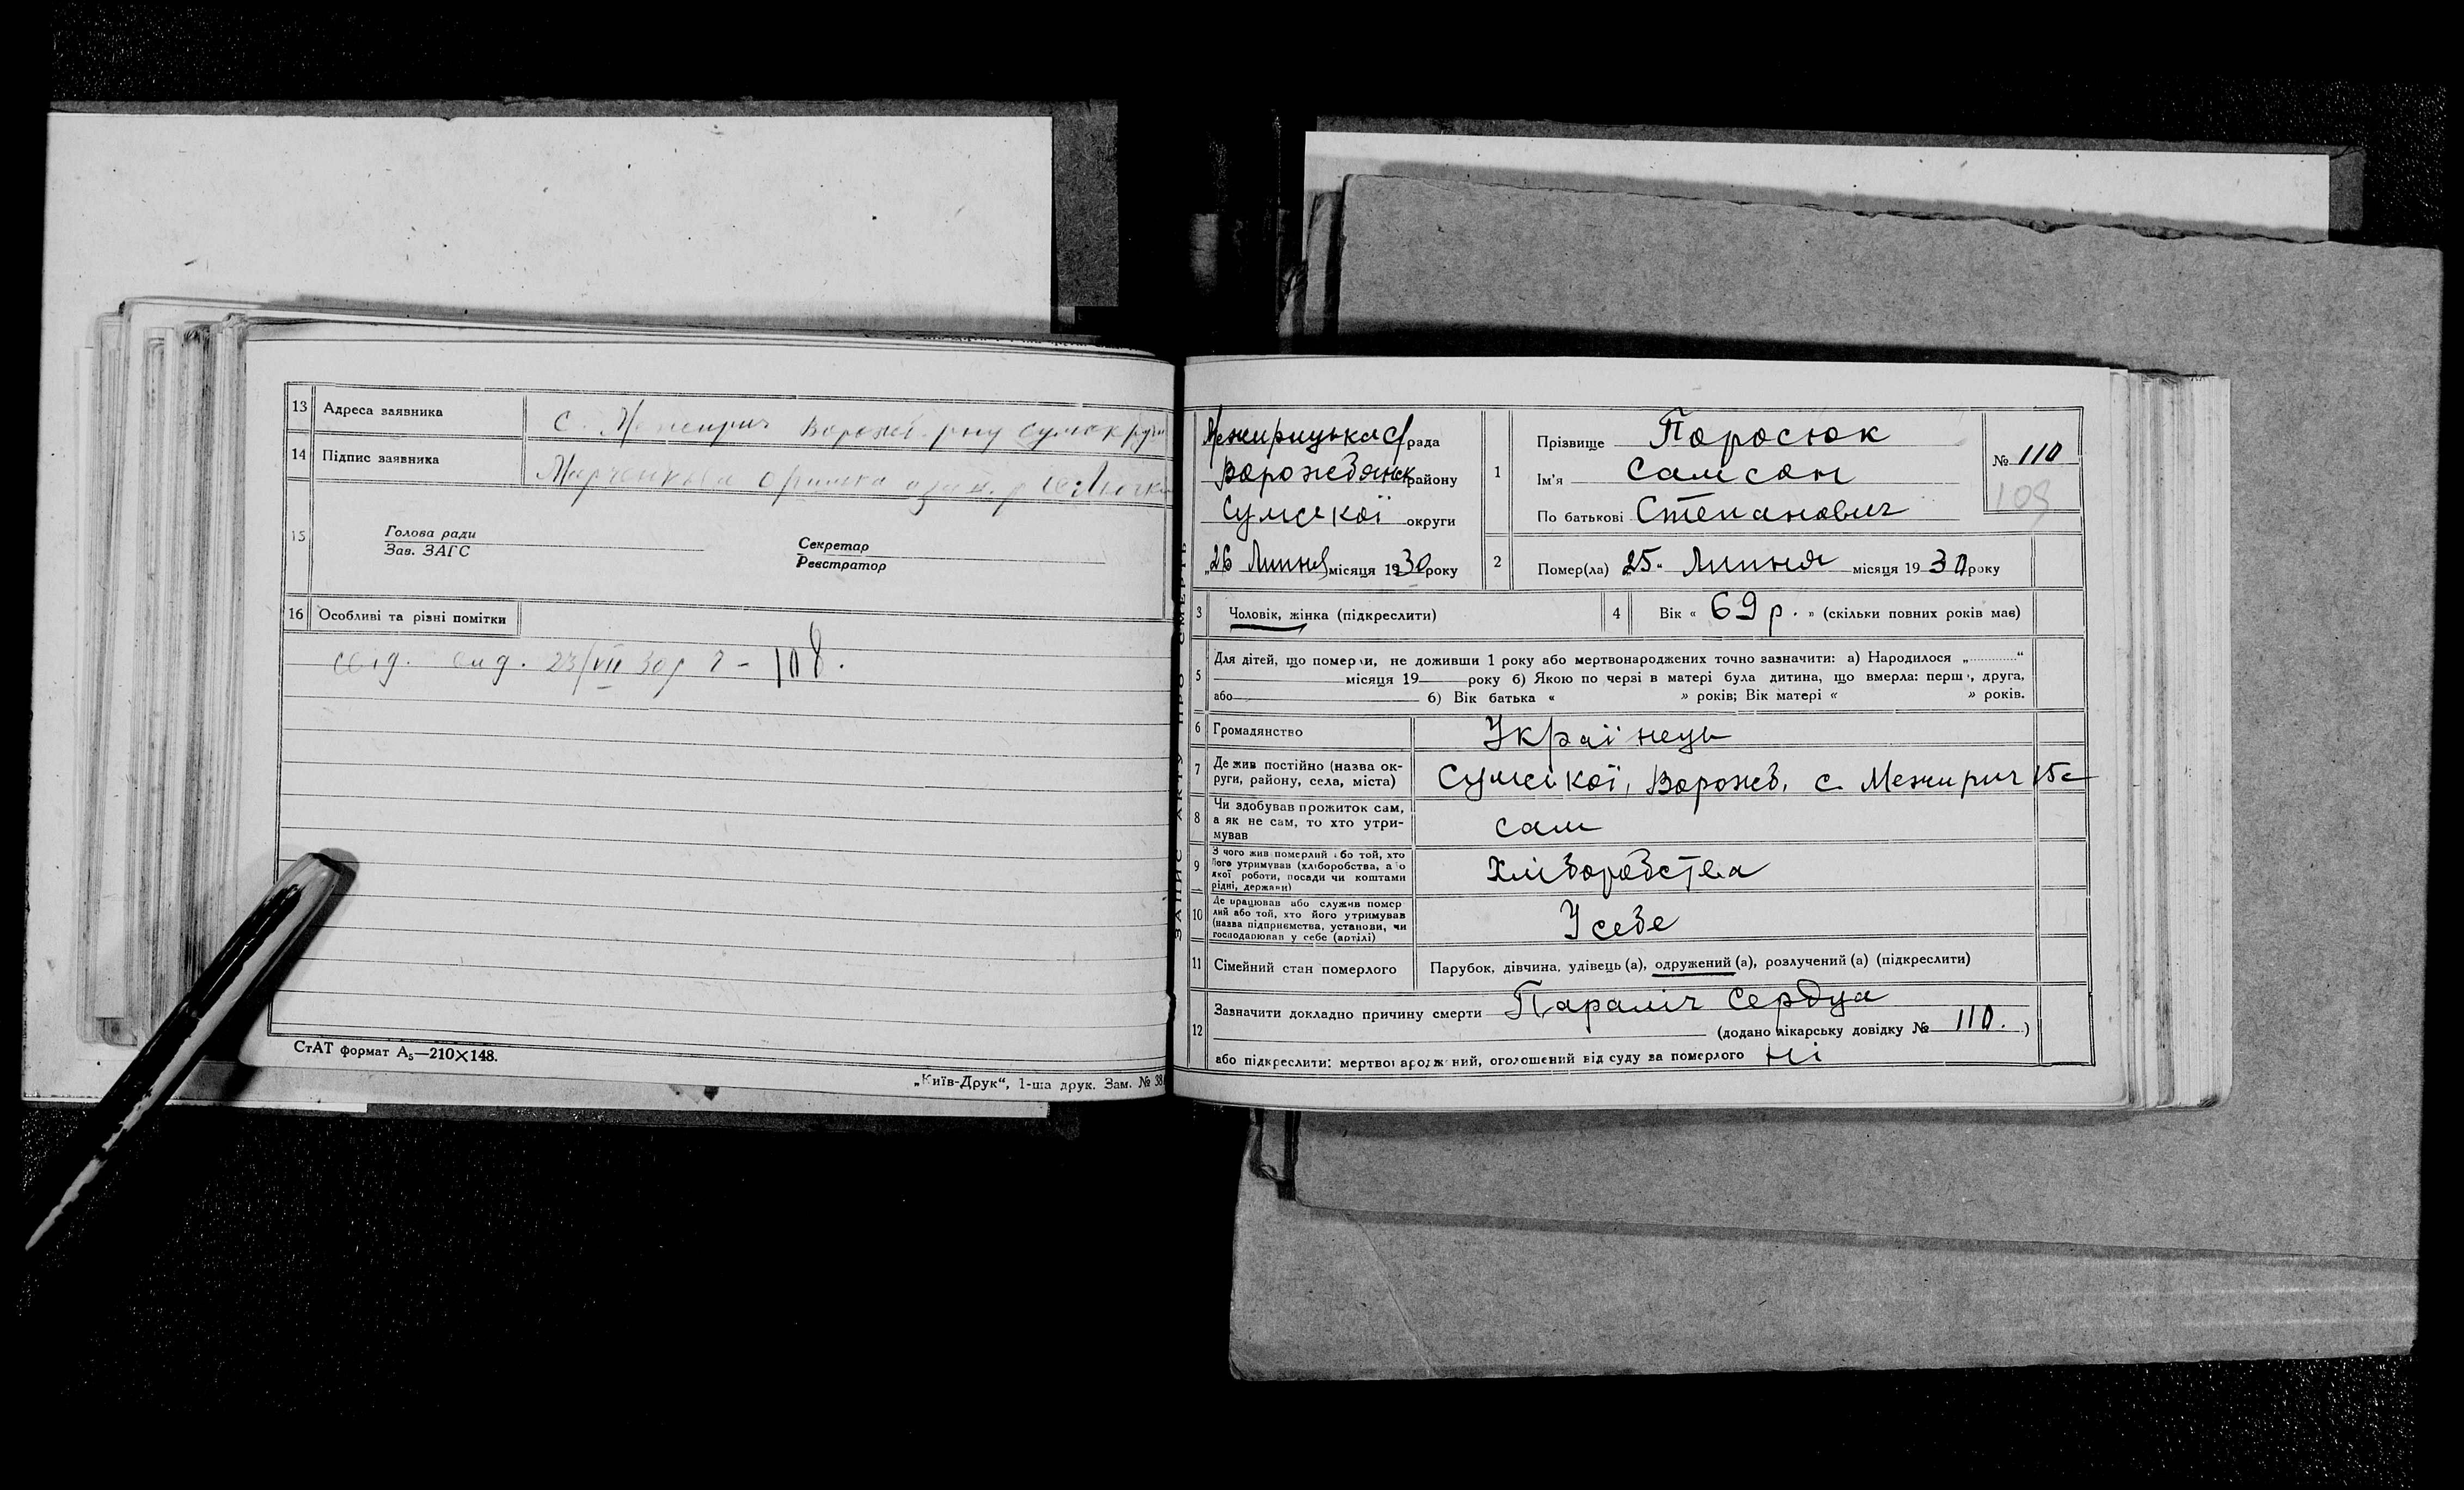 13 Адреса заявника с. Межирич Ворожб. р-ну Сумск
14 Підпис заявника Марченкова Оришка
15 Голова ради
Зав. ЗАГС
Секретар
Реєстратор
16 Особливі та різні помітки
свід. вид. 23/VII 30 р - 108.
СтАТ формат А₅—210×148.
„Київ-Друк“, 1-ша друк. Зам. № 38
ЗАПИС АКТУ ПРО СМЕРТЬ
Межирицька с/рада
Ворожбянск району
Сумської округи
„26 Липня місяця 1930 року
1 Прізвище Поросюк
Ім'я Самсон
По батькові Степанович
№ 110
109
2 Помер(ла) „25“ Липня місяця 1930 року
3 Чоловік, жінка (підкреслити)
4 Вік « 69 р. » (скільки повних років має)
5 Для дітей, що померли, не доживши 1 року або мертвонароджених точно зазначити: а) Народилося „............“
місяця 19 року б) Якою по черзі в матері була дитина, що вмерла: перша, друга,
або б) Вік батька « » років; Вік матері « » років.
6 Громадянство Українець
7 Де жив постійно (назва ок-
руги, району, села, міста) Сумської, Ворожб, с. Межирич 15с
8 Чи здобував прожиток сам,
а як не сам, то хто утри-
мував сам
9 З чого жив померлий або той, хто
його утримував (хліборобства, або
якої роботи, посади чи коштами
рідні, держави) Хліборобства
10 Де працював або служив помер
лий або той, хто його утримував
(назва підприємства, установи, чи
господарював у себе (артілі) У себе
11 Сімейний стан померлого Парубок, дівчина, удівець (а), одружений (а), розлучений (а) (підкреслити)
12 Зазначити докладно причину смерти Параліч Сердца
(додано лікарську довідку № 110. )
або підкреслити: мертвонароджений, оголошений від суду за померлого Ні